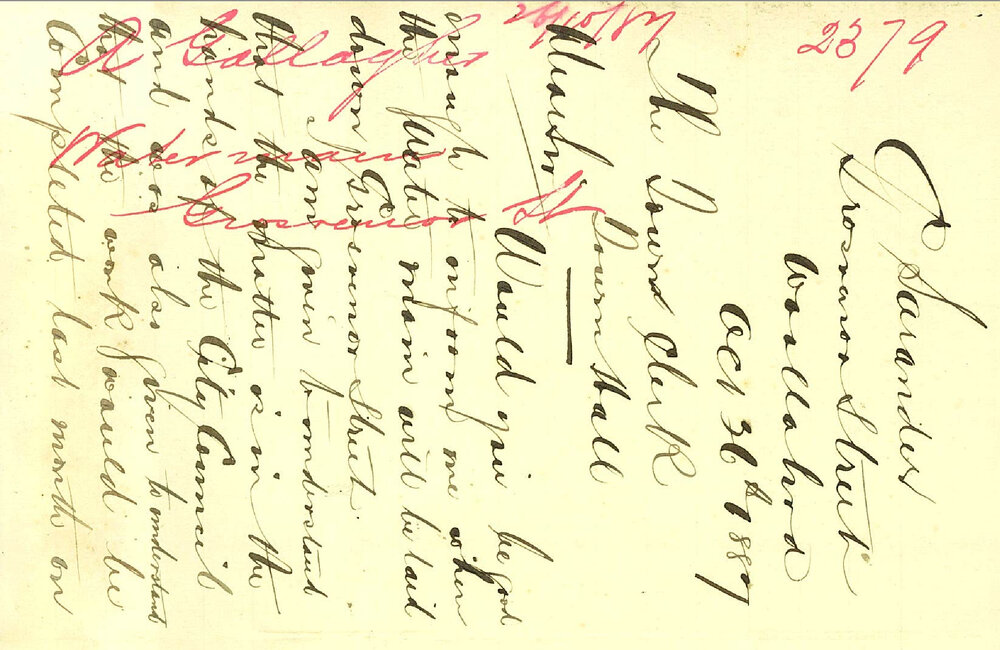 2379
26/10/87
A Gallagher
Water main
Grosvenor St
Sarander
Grosvenor Street
Woollahra
Oct 1887
The Town Clerk
Town Hall
Would you be good
enough to inform me when
the Water main will be laid
down Grosvenor Street
I am given to understand
that the matter is in the
hands of the City Council
and was also given to understand
that the work would be
Completed last month or